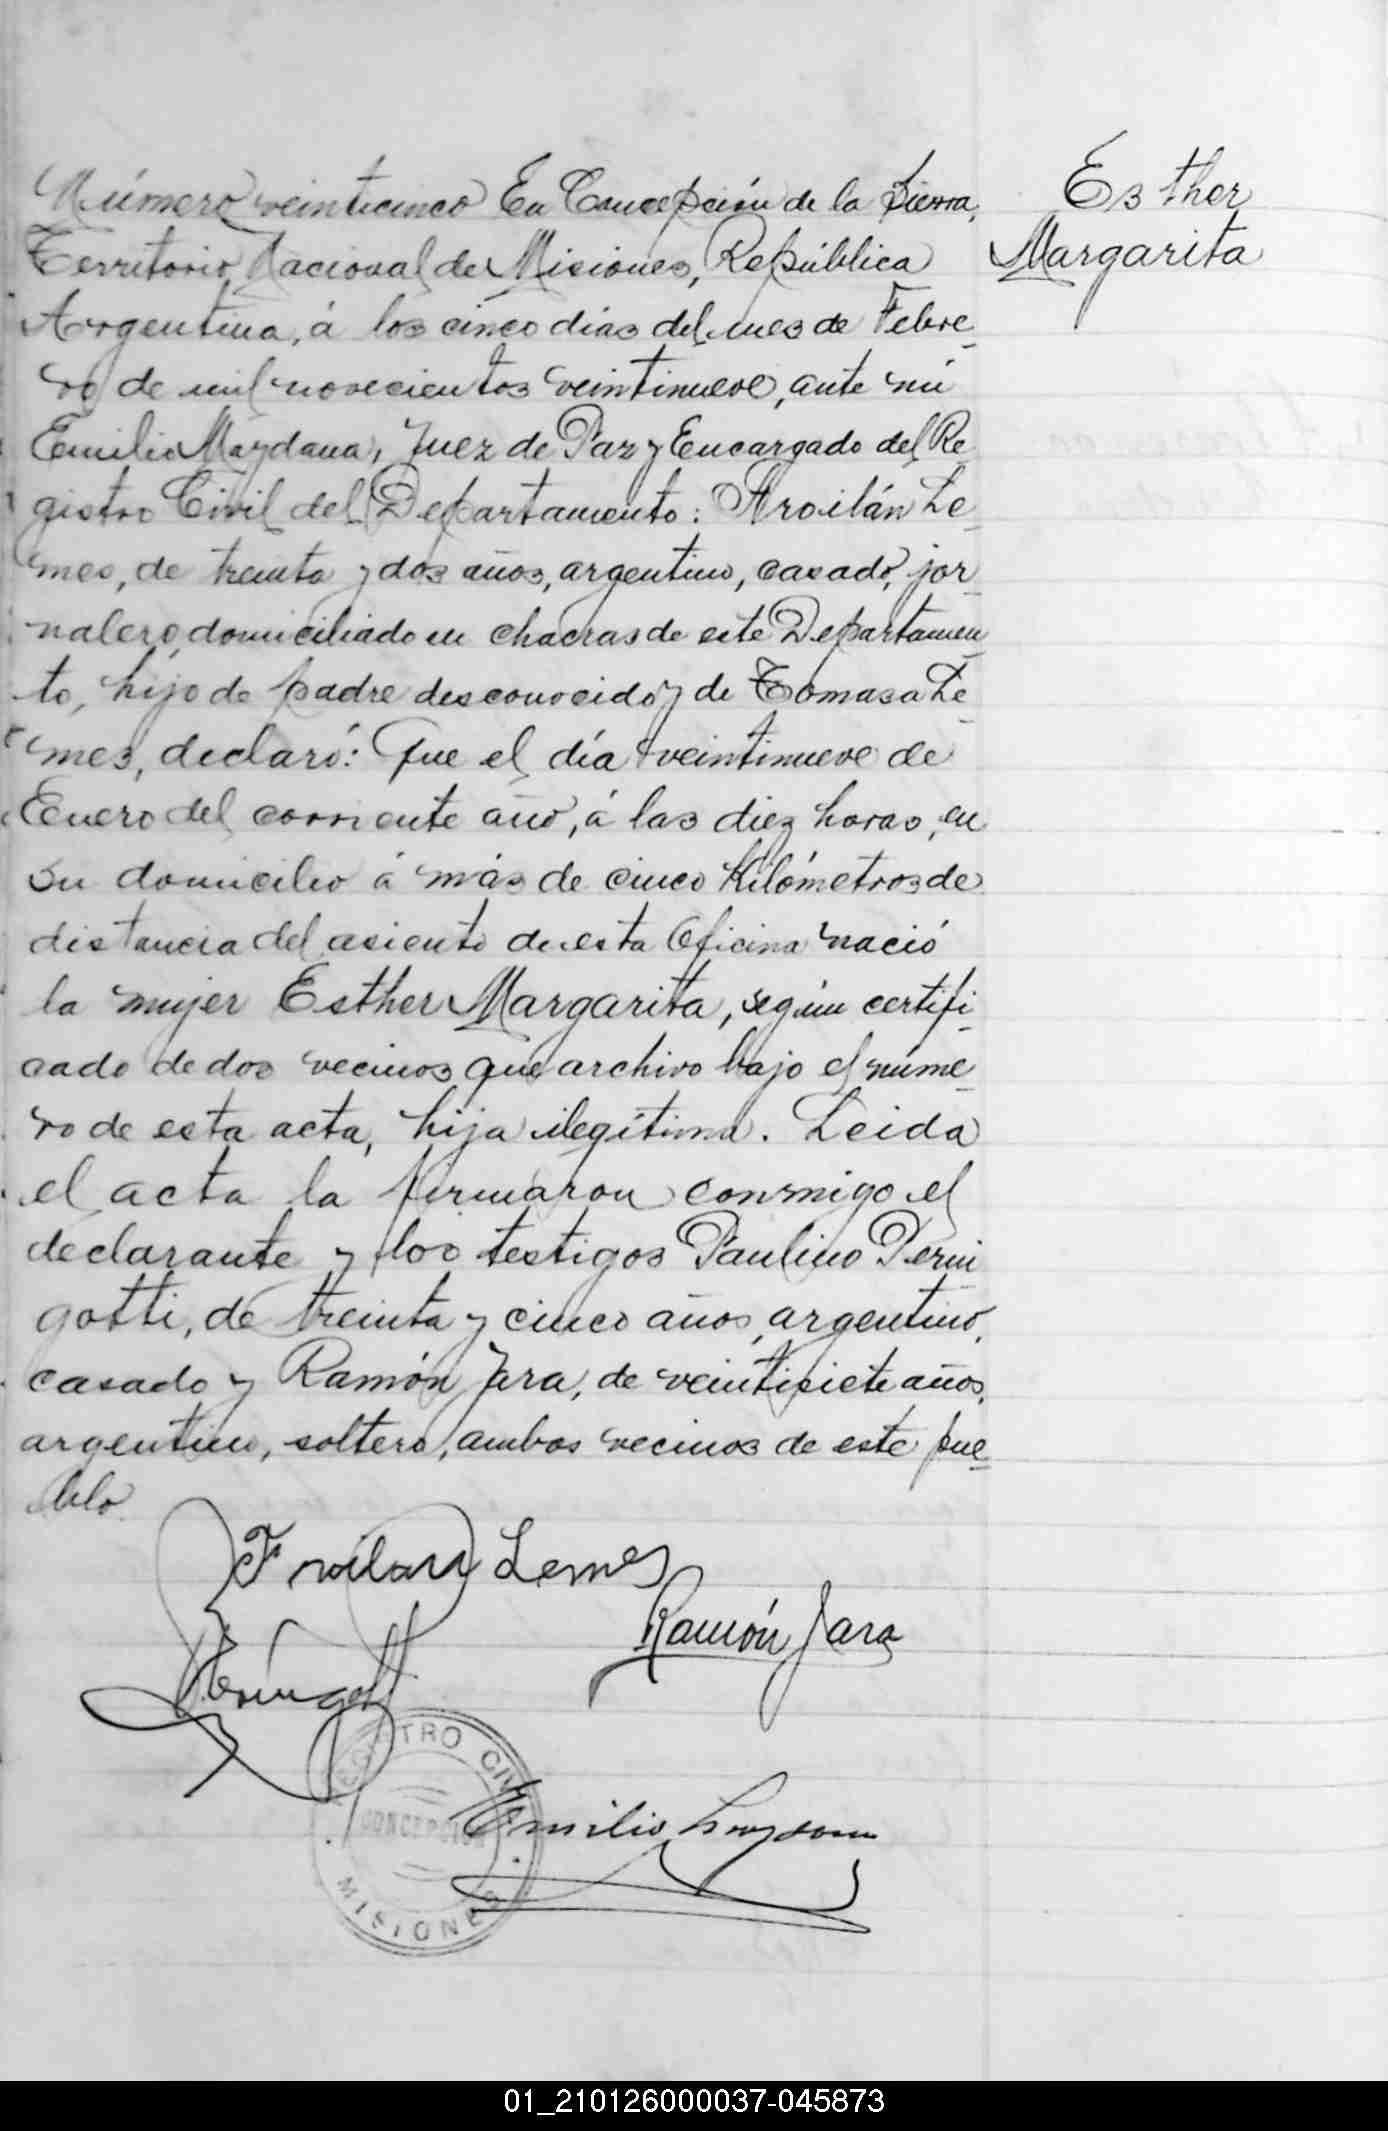 Esther
Margarita
Número veinticinco En Concepción de la Sierra,
Territorio Nacional de Misiones, República
Argentina, á los cinco días del mes de Febre-
ro de mil novecientos veintinueve, ante mí
Emilio Maydana, Juez de Paz y Encargado del Re-
gistro Civil del Departamento: Froilán Le-
mes, de treinta y dos años, argentino, casado, jor-
nalero, domiciliado en chacras de este Departamen-
to, hijo de padre desconocido y de Tomasa Le-
mes, declaró: Que el día veintinueve de
Enero del corriente año, á las diez horas, en
su domicilio á más de cinco Kilómetros de
distancia del asiento de esta Oficina nació
la mujer Esther Margarita, según certifi-
cado de dos vecinos que archivo bajo el núme-
ro de esta acta, hija ilegítima. Leida
el acta la firmaron conmigo el
declarante y los testigos Paulino Perni
gotti, de treinta y cinco años, argentino,
casado y Ramón Jara, de veintisiete años,
argentino, soltero, ambos vecinos de este pue-
blo.
Froilan Lemes
Ramón Jara
Pernigotti
REGISTRO CIVIL
CONCEPCIÓN
MISIONES
Emilio Maydana
01_210126000037-045873